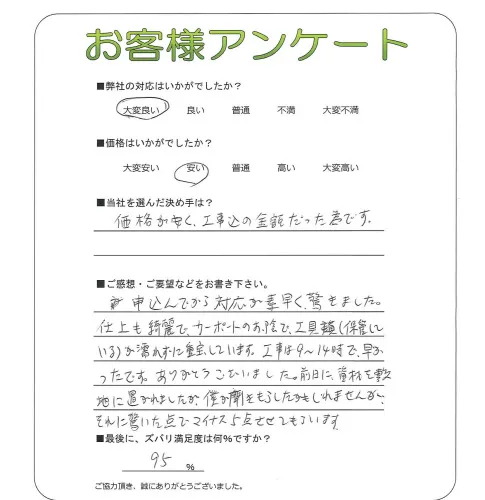 お客様アンケート
■弊社の対応はいかがでしたか？
大変良い 良い 普通 不満 大変不満
■価格はいかがでしたか？
大変安い 安い 普通 高い 大変高い
■当社を選んだ決め手は？
価格が安く、工事込の金額だった為です。
■ご感想・ご要望などをお書き下さい。
申込んでから対応が素早く、驚きました。
仕上も綺麗で、カーポートのお陰で、工具類(保管して
いる)が濡れずに重宝しています。工事は9〜14時で、早か
ったです。ありがとうございました。前日に、資材を敷
地に置かれましたが、僕が聞きもらしたかもしれませんが、
それに驚いた点でマイナス5点させてもらいます
■最後に、ズバリ満足度は何%ですか？
95 %
ご協力頂き、誠にありがとうございました。